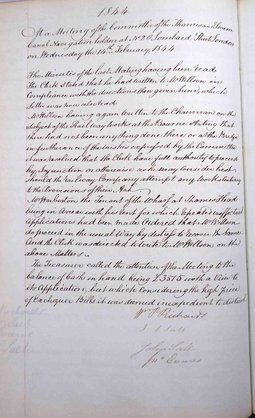 1844
At a Meeting of the Committee of the Thames and Severn
Canal Navigation holden at No 20 Lombard Street London
on Wednesday the 14th February 1844
The Minutes of the last Meeting having been read
The Clerk stated that he had written to Mr Wilson in
Compliance with the directions then given him, which
Letter was now also read
Mr Wilson having again written to the Chairman on the
subject of the Railway works at the
there had not been anything done there or at the Bridge
in furtherance of the wishes expressed by the Committee
it was resolved that the Clerk have full authority to proceed
by injunction or otherwise as he may consider best
should the Railway Company attempt any works contrary
to the Provisions of their Act
the tenant of the Wharf at Thames Head
being in arrear with his rent for which repeated
Applications had been made Ordered that Mr Wilson
do proceed in the usual Way by distress to recover the same
And the Clerk was directed to write to Mr Wilson on the
above Matters
The Treasurer called the attention of the Meeting to the
balance of Cash in hand being £ with a View to
its Application, but which considering the high price
of Exchequer Bills it was deemed inexpedient to disturb
Wm P Richards
John
Jno